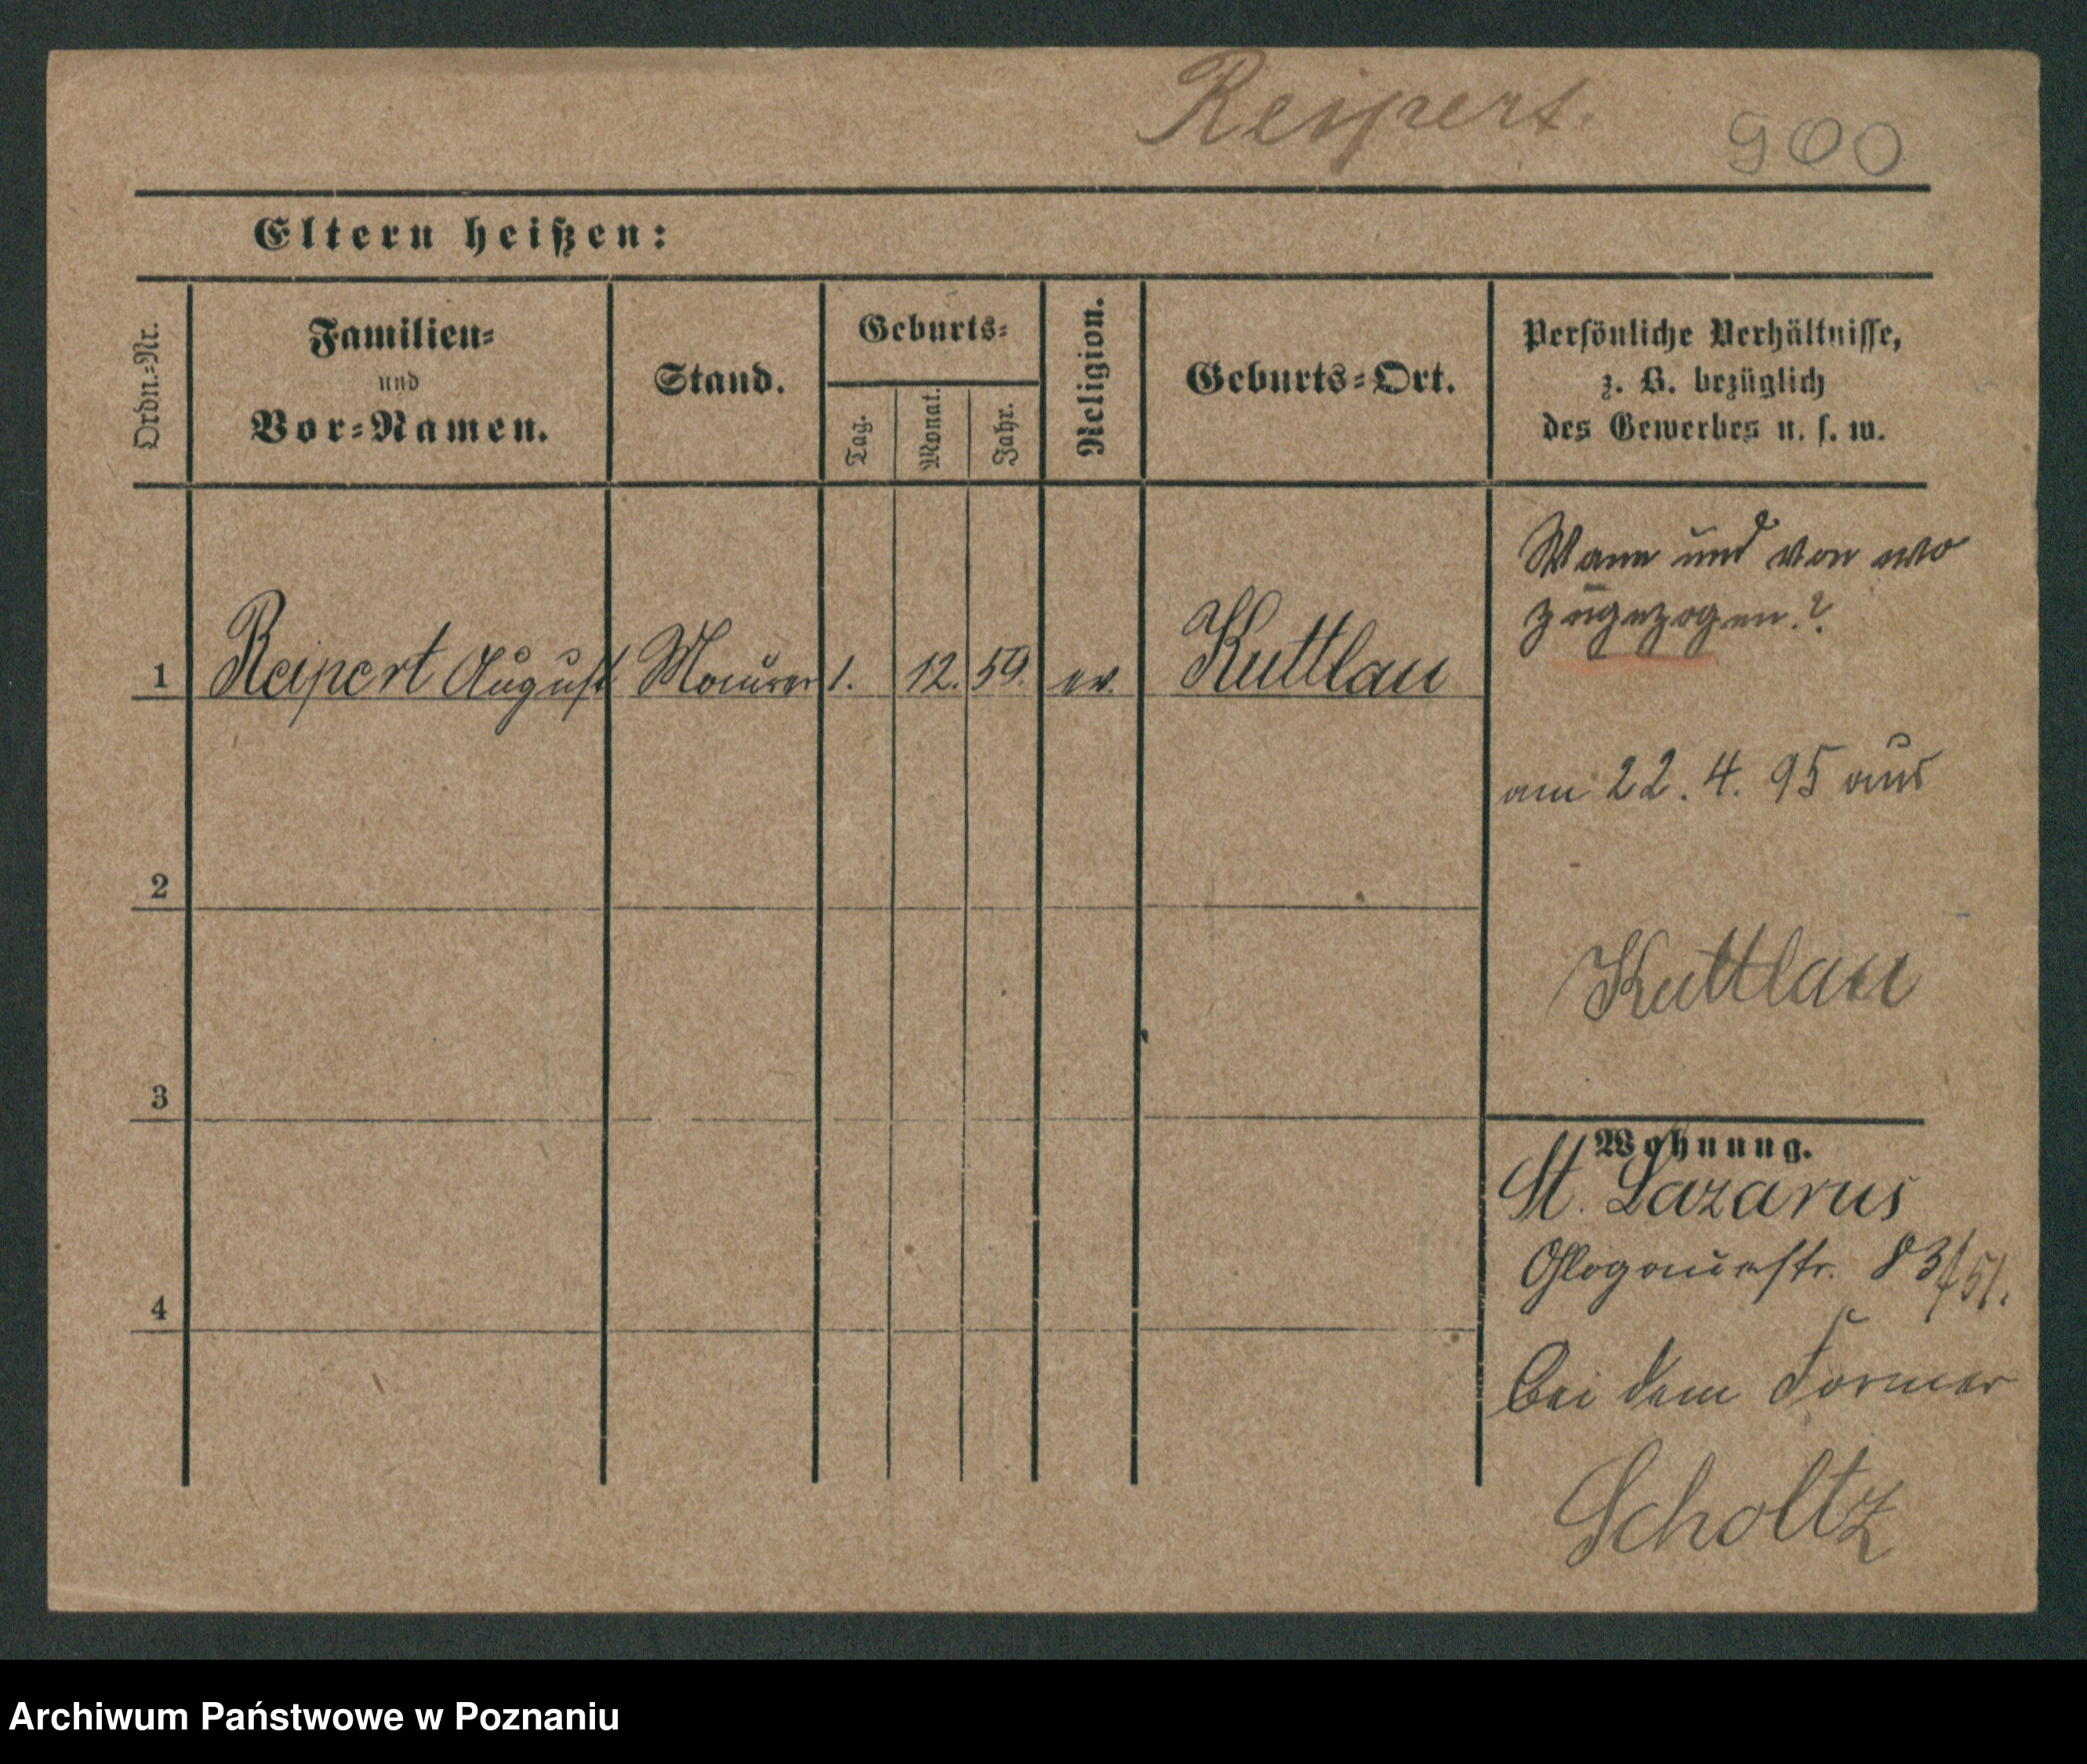 Reipert.
900
Eltern heißen:
Ordn.-Nr.
Familien-
und
Vor-Namen.
Stand.
Geburts-
Tag.
Monat.
Jahr.
Religion.
Geburts-Ort.
Persönliche Verhältnisse,
z. B. bezüglich
des Gewerbes u. s. w.
1 Reipert August Maurer 1. 12. 59. ev. Kuttlau
Wann und von wo
zugezogen?
am 22. 4. 95 aus
Kuttlau
2
3
4
Wohnung.
St. Lazarus
Glogauerstr. 83/51.
bei dem Former
Scholtz
Archiwum Państwowe w Poznaniu